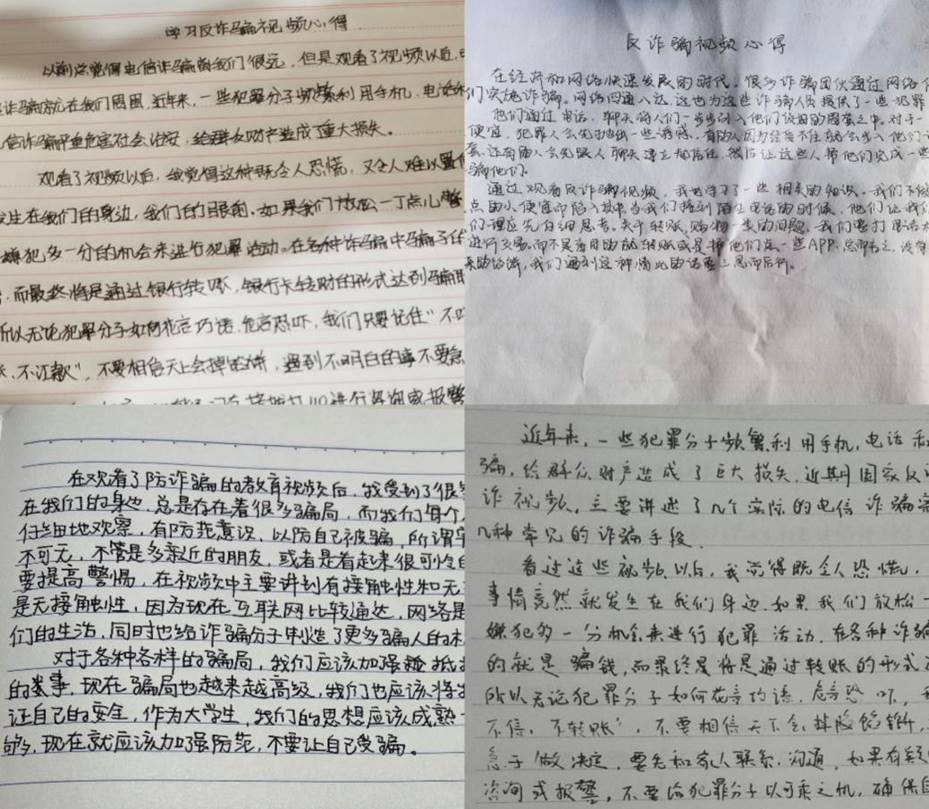 学习反诈骗视频心得
以前总觉得电信诈骗离我们很远，但是观看了视频以后，
诈骗就在我们周围，近年来，一些犯罪分子频繁利用手机、电话和
信诈骗严重危害社会治安，给群众财产造成重大损失。
观看了视频以后，我觉得这种既令人恐慌，又令人难以置
发生在我们的身边，我们的眼前。如果我们放松一丁点儿警
嫌犯多一分的机会来进行犯罪活动。在各种诈骗中骗子
，而最终将是通过银行转账，银行卡转时的形式达到骗取
所以无论犯罪分子如何花言巧语，危言恐吓，我们只要记住"不
、不汇款"，不要相信天上会掉馅饼，遇到不明白的事不要急
拨打110进行咨询或报警
反诈骗视频心得
在经济和网络快速发展的时代，很多诈骗团伙通过网络
们实施诈骗。网络四通八达，这也为这些诈骗人员提供了一些犯罪
他们通过电话，聊天将人们一步步引入他们设围的圈套之中，对于一
便宜，犯罪人会先给出一些诱惑，有的人因为经受不住就会步入他们
套，还有的人会先跟人聊天建立起信任，然后让这些人帮他们完成一些
骗他们。
通过观看反诈骗视频，我也学习了一些相关的知识。我们不能
点的小便宜而陷入其中当我们接到陌生电话的时候，他们让我们
们理应先仔细思考。关于转账，购物一类的问题，我们要打电话
进行交易，而不是盲目的就转账或是帮他们点一些APP，总而言之，没有
来的馅饼，我们遇到这种情况的话要三思而后行。
在观看了防诈骗的教育视频后，我受到了很
在我们的身边，总是存在着很多骗局，而我们每个
仔细地观察，有防范意识，以防自己被骗，所谓
不可无，不管是多亲近的朋友，或者是看起来很可怜的
要提高警惕，在视频中主要讲到有接触性和无
是无接触性，因为现在互联网比较通达，网络是
们的生活，同时也给诈骗分子制造了更多骗人的
对于各种各样的骗局，我们应该加强 抵
的类事，现在骗局也越来越高级，我们也应该将
证自己的安全，作为大学生，我们的思想应该成熟
够，现在就应该加强防范，不要让自己受骗。
近年来，一些犯罪分子频繁利用手机，电话和
骗，给群众财产造成了巨大损失，近期国家反
诈视频，主要讲述了几个实际的电信诈骗案
几种常见的诈骗手段．
看过这些视频以后，我觉得既令人恐慌，
事情竟然就发生在我们身边，如果我们放松一
嫌犯多一分机会来进行犯罪活动，在各种诈骗
的就是骗钱，而最终是将是通过转账的形式
所以无论犯罪分子如何花言巧语，危言恐吓，
不信，不转账"，不要相信天下会掉馅饼，
急于做决定，要先和家人联系，沟通，如果有疑
咨询或报警，不要给犯罪分子以可乘之机，确保